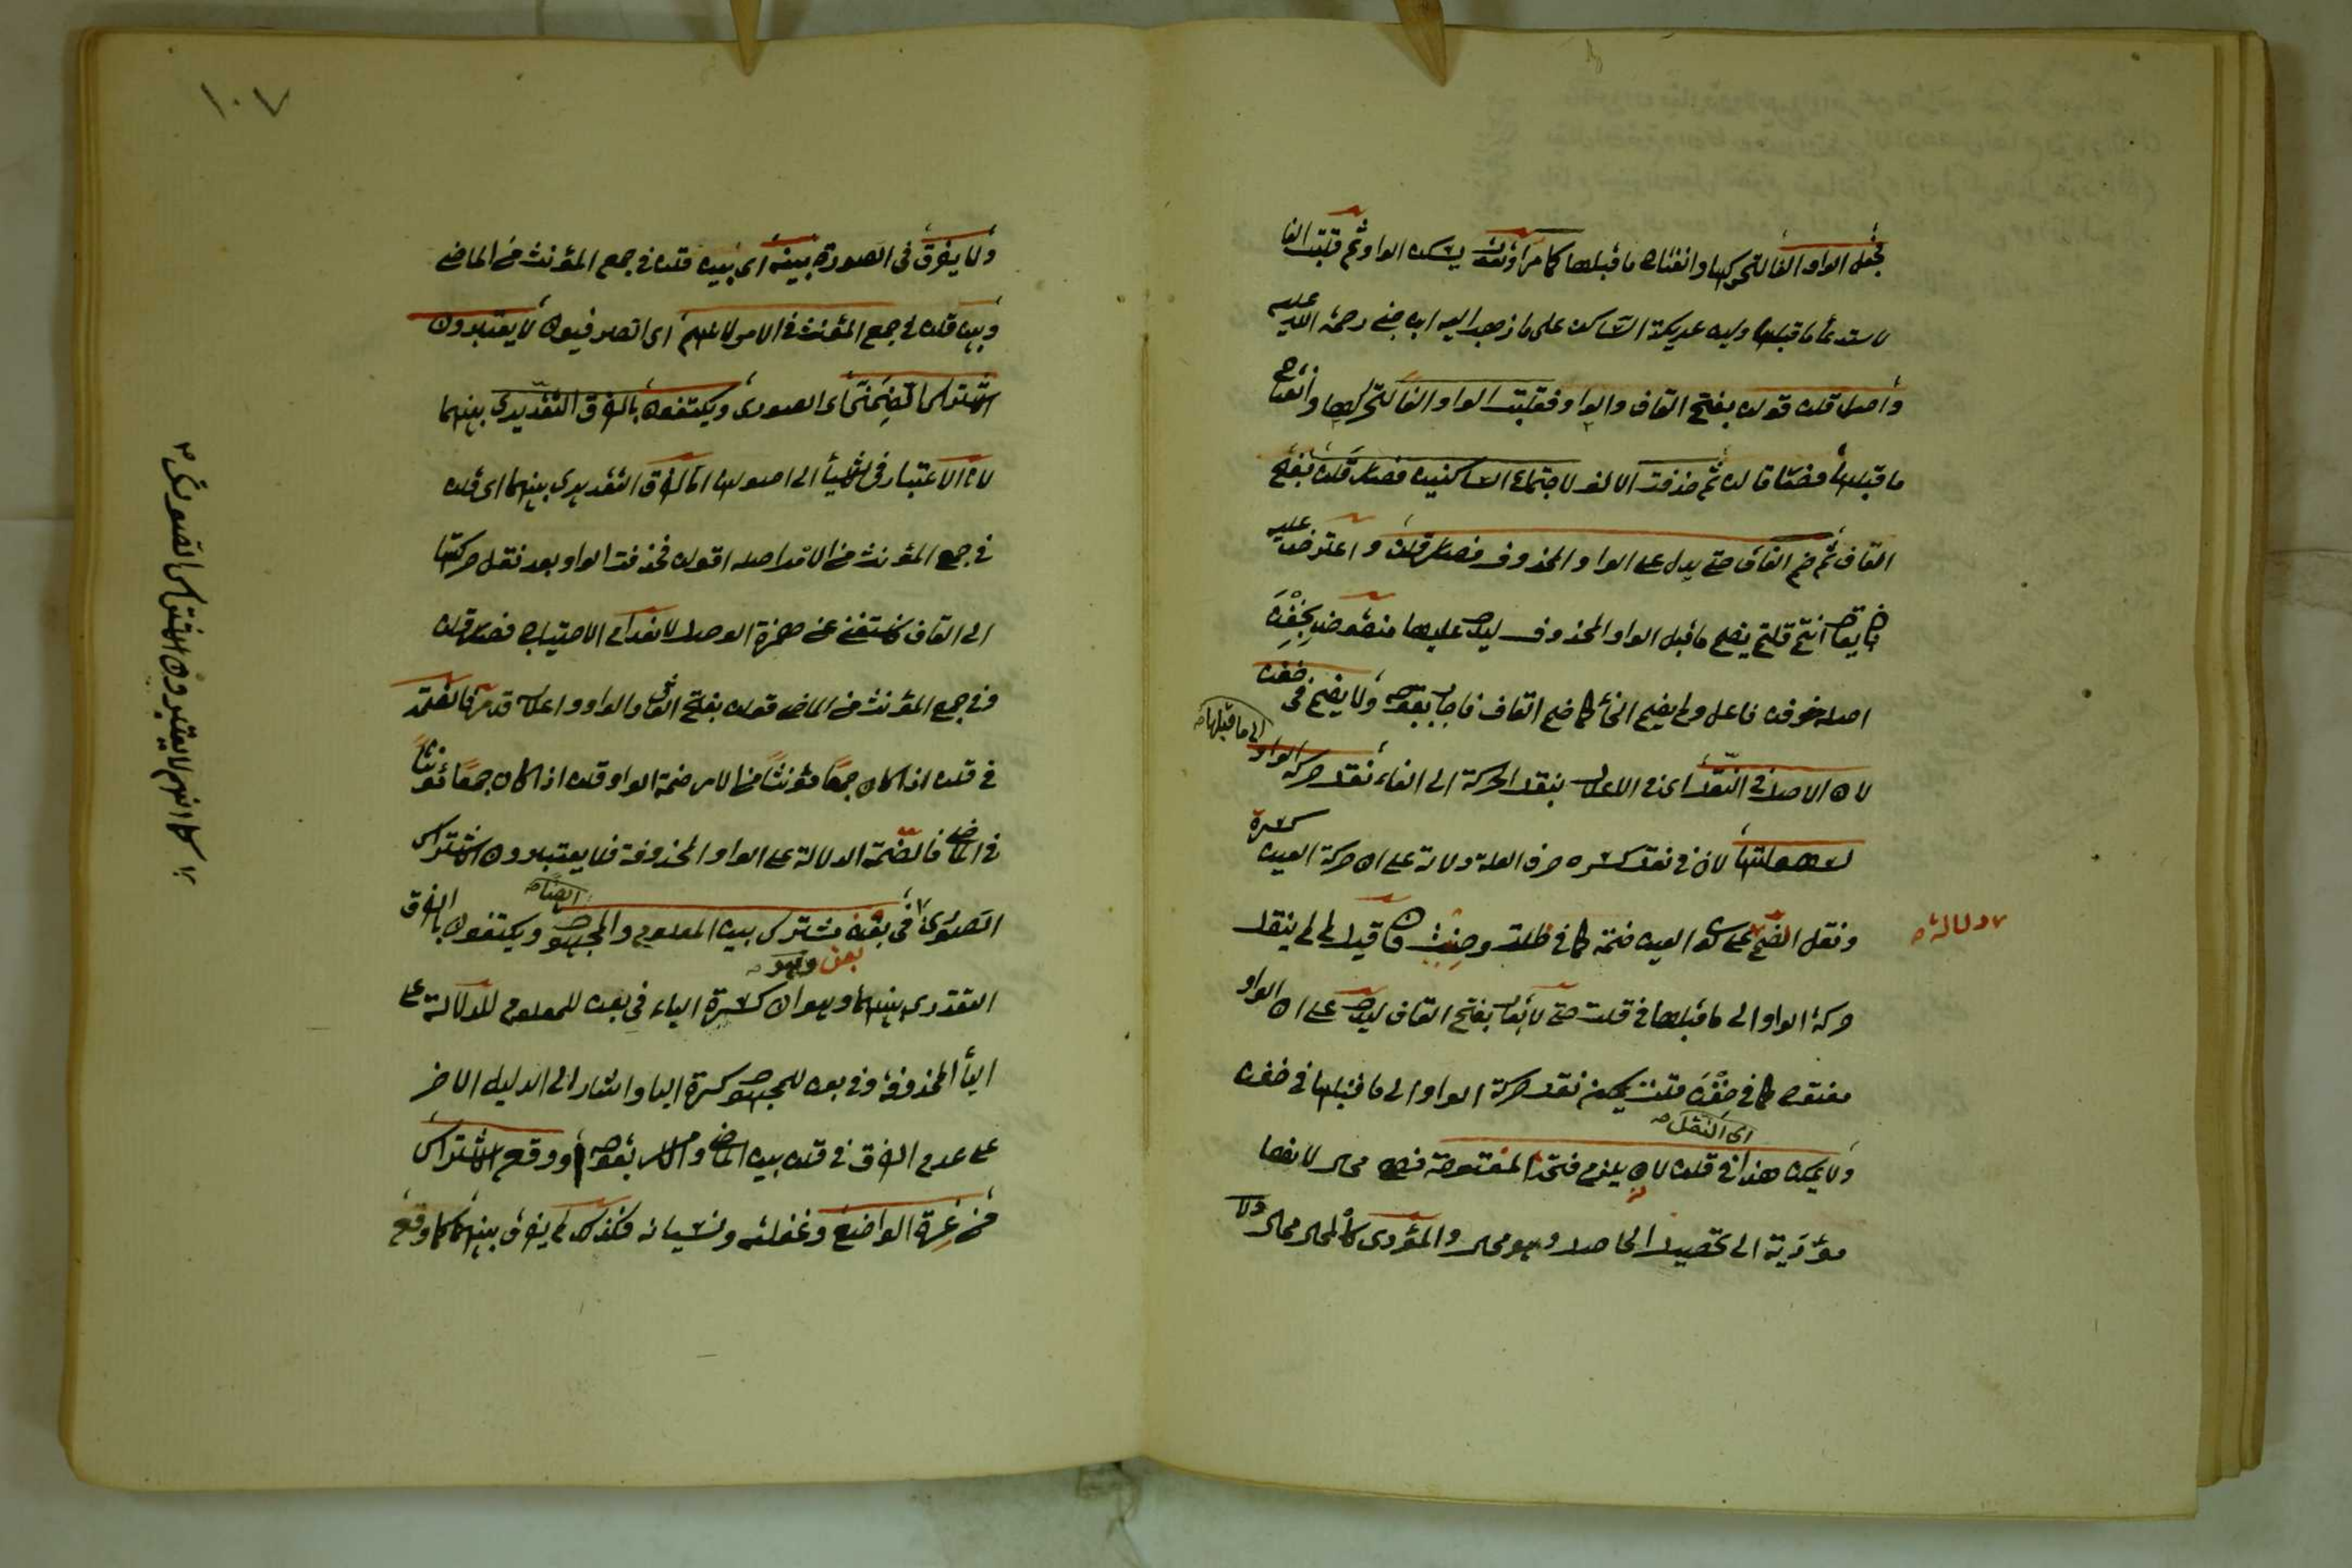 فجعل الواو الفا لتحركها وانفتاح ما قبلها كما مر او نقول يسكن الواو ثم قلبت الفا
لاستدعاء ما قبلها ولين عريكة الساكن على ما ذهب اليه ابن جنى رحمة الله عليه
واصل قلن قولن بفتح القاف والواو فقلبت الواو الفا لتحركها وانفتاح
ما قبلها فصار قالن ثم حذفت الالف لاجتماع الساكنين فصار قلن بفتح
القاف ثم ضم القاف حتى يدل على الواو المحذوف فصار قلن واعترض عليه
بان يقال انتم قلتم يضم ما قبل الواو المحذوف ليدل عليها منقوض بخفن
اصله خوفن فاعل ولم يضم الخاء كما ضم القاف فاجاب بقوله ولا يضم فى خفن
لان الاصل فى النقل اى فى الاعلال بنقل الحركة الى الفاء نقل حركة الواو
الى ما قبلها صح
لسهولتها لان فى نقل كسره حرف العلة دلالة على ان حركة العين كسرة
ونقل الضم على كون العين ضمة كما فى طلت وصنت فان قيل لم لم ينقل
٧ دلالة صح
حركة الواو الى ما قبلها فى قلت حتى لا يقال بفتح القاف ليدل على ان الواو
مفتوح كما فى خفن قلت يمكن نقل حركة الواو الى ما قبلها فى خفن
اى النقل صح
ولا يمكن هذا فى قلن لانه يلزم فتحة المفتوحة فهو محال لانها
مؤدية الى تحصيل الحاصل وهو محال والمؤدى كالمحال محال ولا
١٠٧
ولا يفرق فى الصورة بينه اى بين قلن فى جمع المؤنث من الماضى
وبين قلن فى جمع المؤنث فى الامر لانهم اى الصرفيون لا يعتبرون
الاشتراك الضمنى اى الصورى ويكتفون بالفرق التقديرى بينهما
لان الاعتبار فى الاشياء الى اصولها اما الفرق التقديرى بينهما اى قلن
فى جمع المؤنث من الامر اصله اقولن فحذفت الواو بعد نقل حركتها
الى القاف فاستغنى عن همزة الوصل لانعدام الاحتياج فصار قلن
وفى جمع المؤنث من الماضى قولن بفتح القاف والواو واعلاله قد مر فالضمة
فى قلن اذا كان جمعا مؤنثا من الامر ضمة الواو قلن اذا كان جمعا مؤنثا
فى الماضى فالضمة الدلالة على الواو المحذوفة فلا يعتبرون الاشتراك
الصورى فى بعن مشترك بين المعلوم والمجهول ويكتفون بالفرق
ايضا صح
التقديرى بينهما وهو ان كسرة الباء فى بعن للمعلوم للدلالة على
بعن وهو صح
الياء المحذوفة وفى بعن للمجهول كسرة الياء واشار الى الدليل الاخر
على عدم الفرق فى قلن بين الماضى والامر بقوله او وقع الاشتراك
من غرة الواضع وغفلته ونسيانه فلذلك لم يفرق بينهما كما وقع
كما انهم لا يعتبرون الاشتراك الصورى